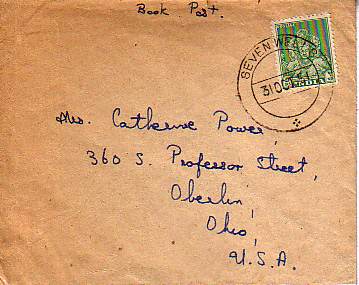 Book Post.
SEVEN WELLS
31 OCT
INDIA
Mrs. Catherine Power,
360 S. Professor Street,
Oberlin,
Ohio,
U.S.A.